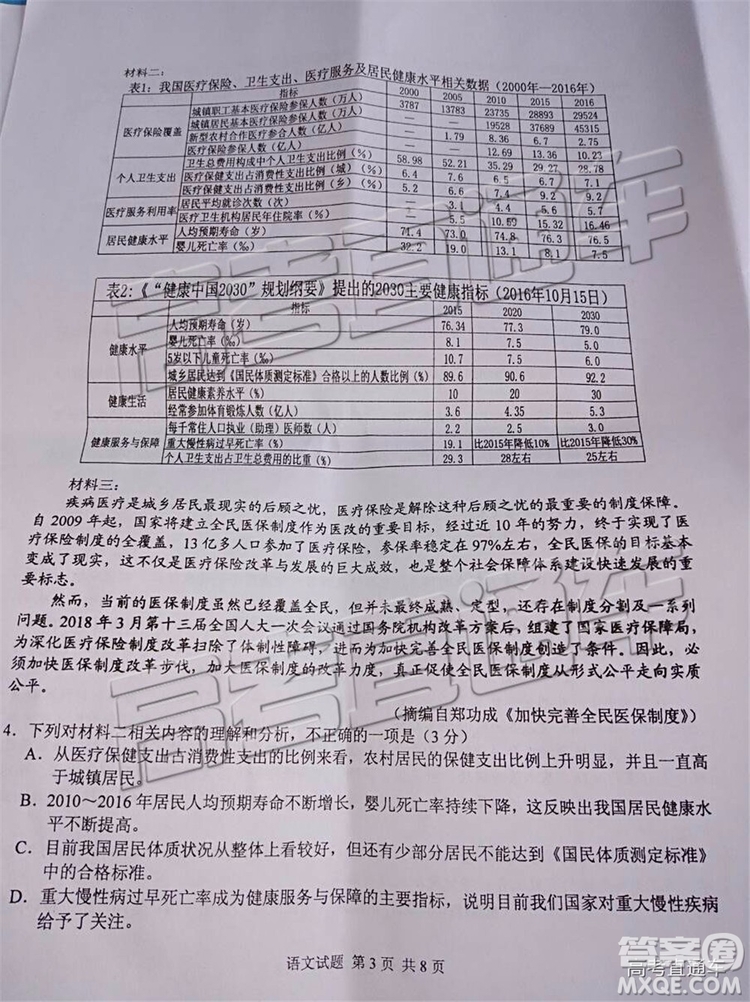 材料二：
表1：我国医疗保险、卫生支出、医疗服务及居民健康水平相关数据（2000年—2016年）
指标 2000 2005 2010 2015 2016
医疗保险覆盖
城镇职工基本医疗保险参保人数（万人） 3787 13783 23735 28893 29524
城镇居民基本医疗保险参保人数（万人） — — 19528 37689 45315
新型农村合作医疗参合人数（亿人） — 1.79 8.36 6.7 2.75
医疗保险参保人数（亿人） — — 12.69 13.36 10.23
个人卫生支出
卫生总费用构成中个人卫生支出比例（%） 58.98 52.21 35.29 29.27 28.78
医疗保健支出占消费性支出比例（城）（%） 6.4 7.6 6.5 6.7 7.1
医疗保健支出占消费性支出比例（乡）（%） 5.2 6.6 7.4 9.2
医疗服务利用率
居民平均就诊次数（次） — 3.1 4.4 5.6 5.7
医疗卫生机构居民年住院率（%） — 5.5 10.59 15.32 16.46
居民健康水平
人均预期寿命（岁） 71.4 73.0 74.8 76.3 76.5
婴儿死亡率（‰） 32.2 19.0 13.1 8.1 7.5
表2：《“健康中国2030”规划纲要》提出的2030主要健康指标（2016年10月15日）
指标 2015 2020 2030
健康水平
人均预期寿命（岁） 76.34 77.3 79.0
婴儿死亡率（‰） 8.1 7.5 5.0
5岁以下儿童死亡率（‰） 10.7 7.5 6.0
城乡居民达到《国民体质测定标准》合格以上的人数比例（%） 89.6 90.6 92.2
健康生活
居民健康素养水平（%） 10 20 30
经常参加体育锻炼人数（亿人） 3.6 4.35 5.3
健康服务与保障
每千常住人口执业（助理）医师数（人） 2.2 2.5 3.0
重大慢性病过早死亡率（%） 19.1 比2015年降低10% 比2015年降低30%
个人卫生支出占卫生总费用的比重（%） 29.3 28左右 25左右
材料三：
疾病医疗是城乡居民最现实的后顾之忧，医疗保险是解除这种后顾之忧的最重要的制度保障。
自 2009 年起，国家将建立全民医保制度作为医改的重要目标，经过近 10 年的努力，终于实现了医
疗保险制度的全覆盖，13 亿多人口参加了医疗保险，参保率稳定在 97%左右，全民医保的目标基本
变成了现实，这不仅是医疗保险改革与发展的巨大成效，也是整个社会保障体系建设快速发展的重
要标志。
然而，当前的医保制度虽然已经覆盖全民，但并未最终成熟、定型，还存在制度分割及一系列
问题。2018 年 3 月第十三届全国人大一次会议通过国务院机构改革方案后，组建了国家医疗保障局，
为深化医疗保险制度改革扫除了体制性障碍，进而为加快完善全民医保制度创造了条件。因此，必
须加快医保制度改革步伐，加大医保制度的改革力度，真正促使全民医保制度从形式公平走向实质
公平。
（摘编自郑功成《加快完善全民医保制度》）
4．下列对材料二相关内容的理解和分析，不正确的一项是（3 分）
A．从医疗保健支出占消费性支出的比例来看，农村居民的保健支出比例上升明显，并且一直高
于城镇居民。
B．2010～2016 年居民人均预期寿命不断增长，婴儿死亡率持续下降，这反映出我国居民健康水
平不断提高。
C．目前我国居民体质状况从整体上看较好，但还有少部分居民不能达到《国民体质测定标准》
中的合格标准。
D．重大慢性病过早死亡率成为健康服务与保障的主要指标，说明目前我们国家对重大慢性疾病
给予了关注。
语文试题 第 3 页 共 8 页
高考直通车
高考直通车
高考直通车
答案圈
MXQE.COM